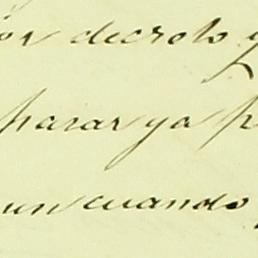 ior decreto y
pasar ya p
un cuando